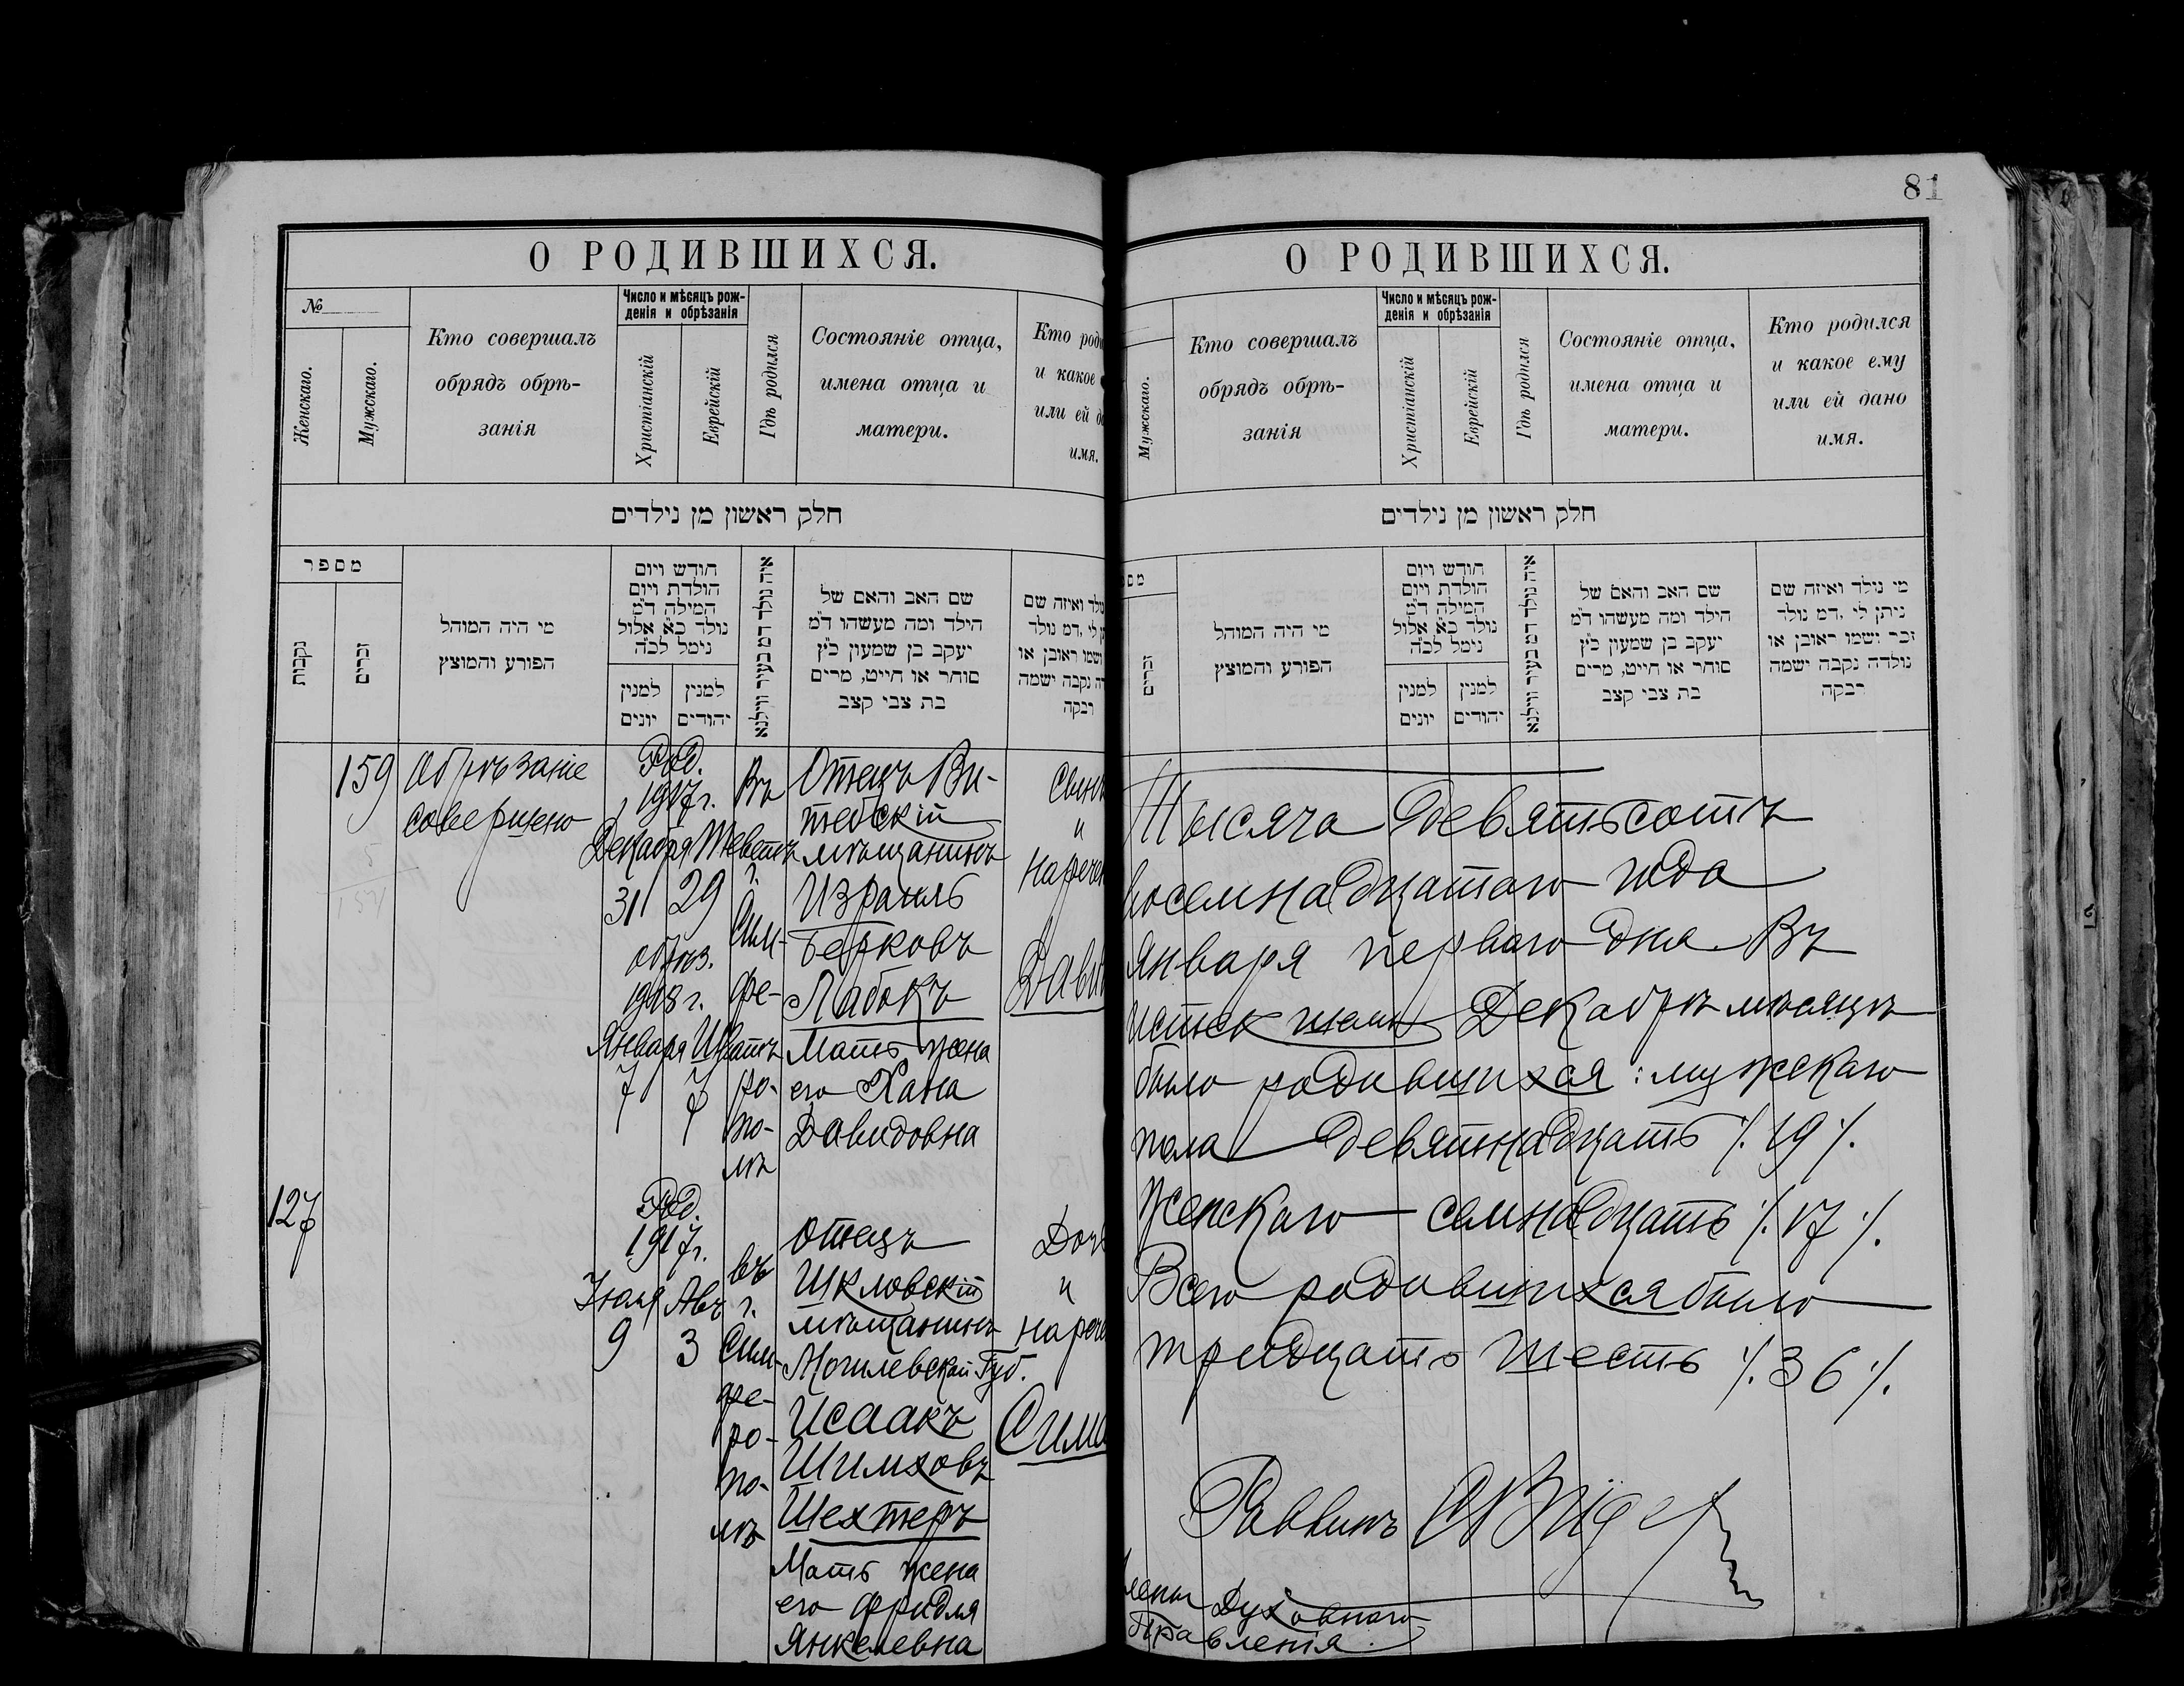 О РОДИВШИХСЯ.
№
Женскаго.
Мужскаго.
Кто совершалъ
обрядъ обрѣ-
занія
Число и мѣсяцъ рож-
денія и обрѣзанія
Христіанскій
Еврейскій
Гдѣ родился
Состояніе отца,
имена отца и
матери.
Кто роди
и какое
или ей да
имя.
חלק ראשון מן נילדים
מספר
נקבות
זכרים
מי היה המוהל
הפורע והמוצץ
חודש ויום
הולדת ויום
המילה ד״מ
נולד כ״א אלול
נימל לכ״ה
למנין
יונים
למנין
יהודים
איה נולד דמ בעיר ווילנא
שם האב והאם של
הילד ומה מעשהו ד״מ
יעקב בן שמעון כ״ץ
סוחר או חייט, מרים
בת צבי קצב
ולד ואיזה שם
ן לי .דמ נולד
ושמו ראובן או
דה נקבה ישמה
רבקה
159
Обрѣзаніе
совершено
Род.
1917 г.
Декабря Теветъ
31 29
обрѣз.
1918 г.
Января Шватъ
7 7
Въ
г.
Сим-
фе-
ро-
по-
лѣ
Отецъ Ви-
тебскій
мѣщанинъ
Израиль
Берковъ
Лабокъ
Мать жена
его Хана
Давидовна
Сынъ
и
наречен
Дави
127
Род.
1917 г.
Іюля Авъ
9 3
въ
г.
Сим-
фе-
ро-
по-
лѣ
Отецъ
Шкловскій
мѣщанинъ
Могилевской Губ.
Исаакъ
Шимховъ
Шехтеръ
Мать жена
его Фридля
Янкелевна
Дочь
и
нарече
Сима
81
О РОДИВШИХСЯ.
Мужскаго.
Кто совершалъ
обрядъ обрѣ-
занія
Число и мѣсяцъ рож-
денія и обрѣзанія
Христіанскій
Еврейскій
Гдѣ родился
Состояніе отца,
имена отца и
матери.
Кто родился
и какое ему
или ей дано
имя.
חלק ראשון מן נילדים
מס
זכרים
מי היה המוהל
הפורע והמוצץ
חודש ויום
הולדת ויום
המילה ד״מ
נולד כ״א אלול
נימל לכ״ה
למנין
יונים
למנין
יהודים
איה נולד דמ בעיר ווילנא
שם האב והאם של
הילד ומה מעשהו ד״מ
יעקב בן שמעון כ״ץ
סוחר או חייט, מרים
בת צבי קצב
מי נולד ואיזה שם
ניתן לי .דמ נולד
זכר ושמו ראובן או
נולדה נקבה ישמה
רבקה
Тысяча девятьсотъ
восемнадцатаго года
января перваго дня Въ
истекшемъ Декабрѣ мѣсяцѣ
было родившихся: мужскаго
пола девятнадцать ٪ 19 ٪.
женскаго семнадцать ٪ 17 ٪.
Всего родившихся было
тридцать шесть ٪ 36 ٪.
Раввинъ
лены Духовнаго
Правленія.